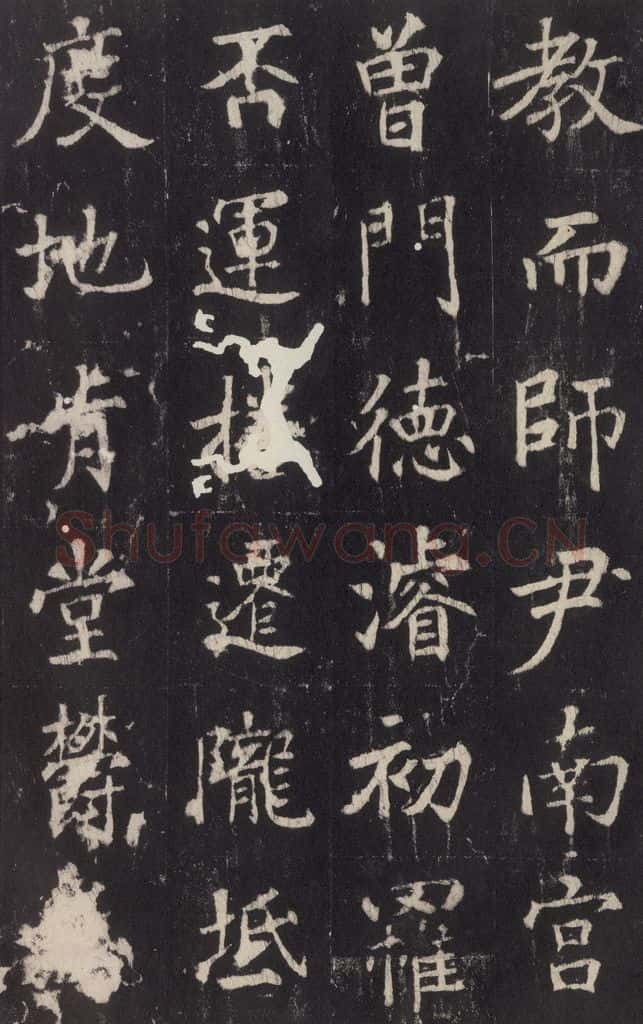 教而師尹南宮
曾門德濬初羅
否運 遷隴坻
度地肯堂欝
Shufawang.CN